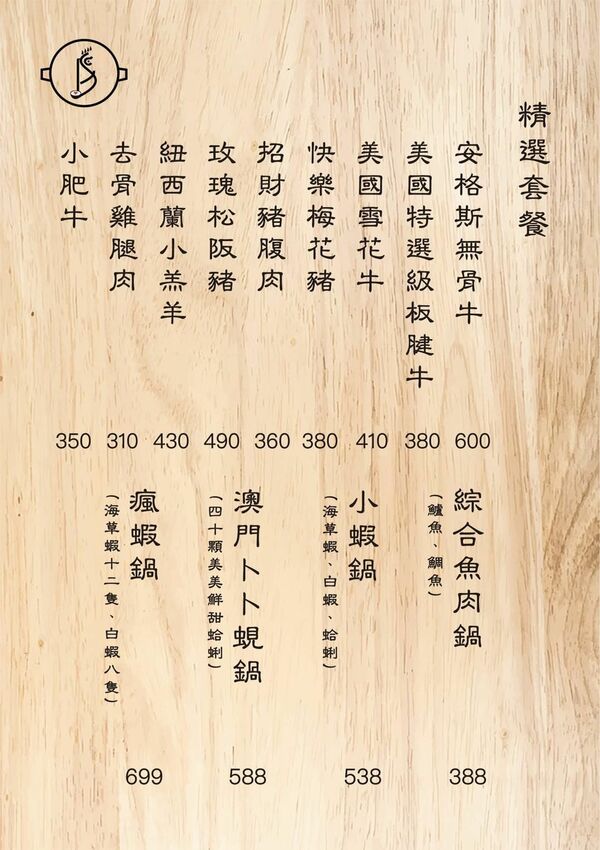 精選套餐
安格斯無骨牛
600
美國特選級板腱牛
380
美國雪花牛
410
快樂梅花豬
380
招財豬腹肉
360
玫瑰松阪豬
490
紐西蘭小羔羊
430
去骨雞腿肉
310
小肥牛
350
綜合魚肉鍋
(鱸魚、鯛魚)
388
小蝦鍋
(海草蝦、白蝦、蛤蜊)
538
澳門卜卜蜆鍋
(四十顆美美鮮甜蛤蜊)
588
瘋蝦鍋
(海草蝦十二隻、白蝦八隻)
699